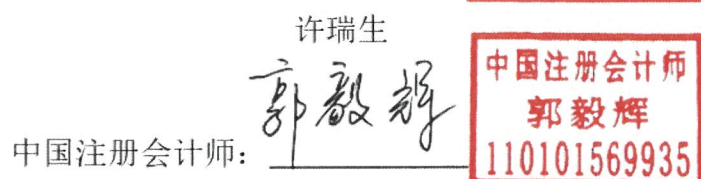 许瑞生
郭毅辉
中国注册会计师：
中国注册会计师
郭毅辉
110101569935